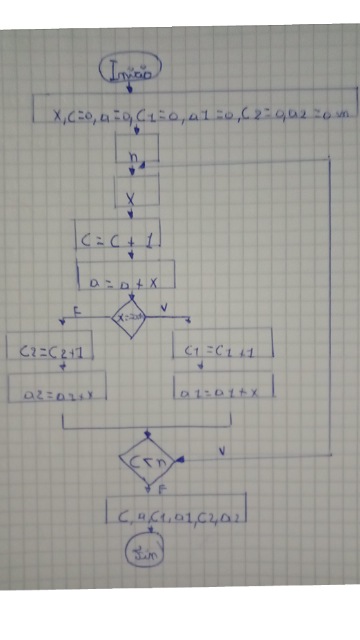 Início
X, C=0, a=0, C1=0, a1=0, C2=0, a2=0
n
X
C = C + 1
a = a + x
F V
C2=C2+1 C1=C1+1
a2=a2+x a1=a1+x
C<n V
F
C, a, C1, a1, C2, a2
Fim